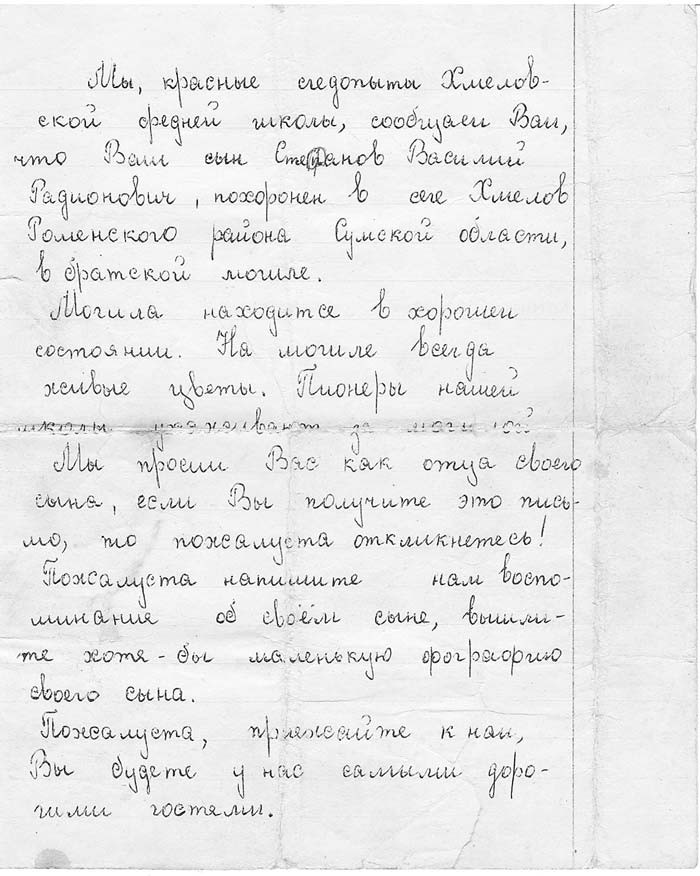 Мы, красные следопыты Хмелов-
ской средней школы, сообщаем Вам,
что Ваш сын Степанов Василий
Радионович, похоронен в селе Хмелов
Роменского района Сумской области,
в братской могиле.
Могила находится в хорошем
состоянии. На могиле всегда
живые цветы. Пионеры нашей
школы ухаживают за могилой
Мы просим Вас как отца своего
сына, если Вы получите это пись-
мо, то пожалуста откликнетесь!
Пожалуста напишите нам воспо-
минание об своём сыне, вышли-
те хотя-бы маленькую фографию
своего сына.
Пожалуста, приежайте к нам,
Вы будете у нас самыми доро-
гими гостями.